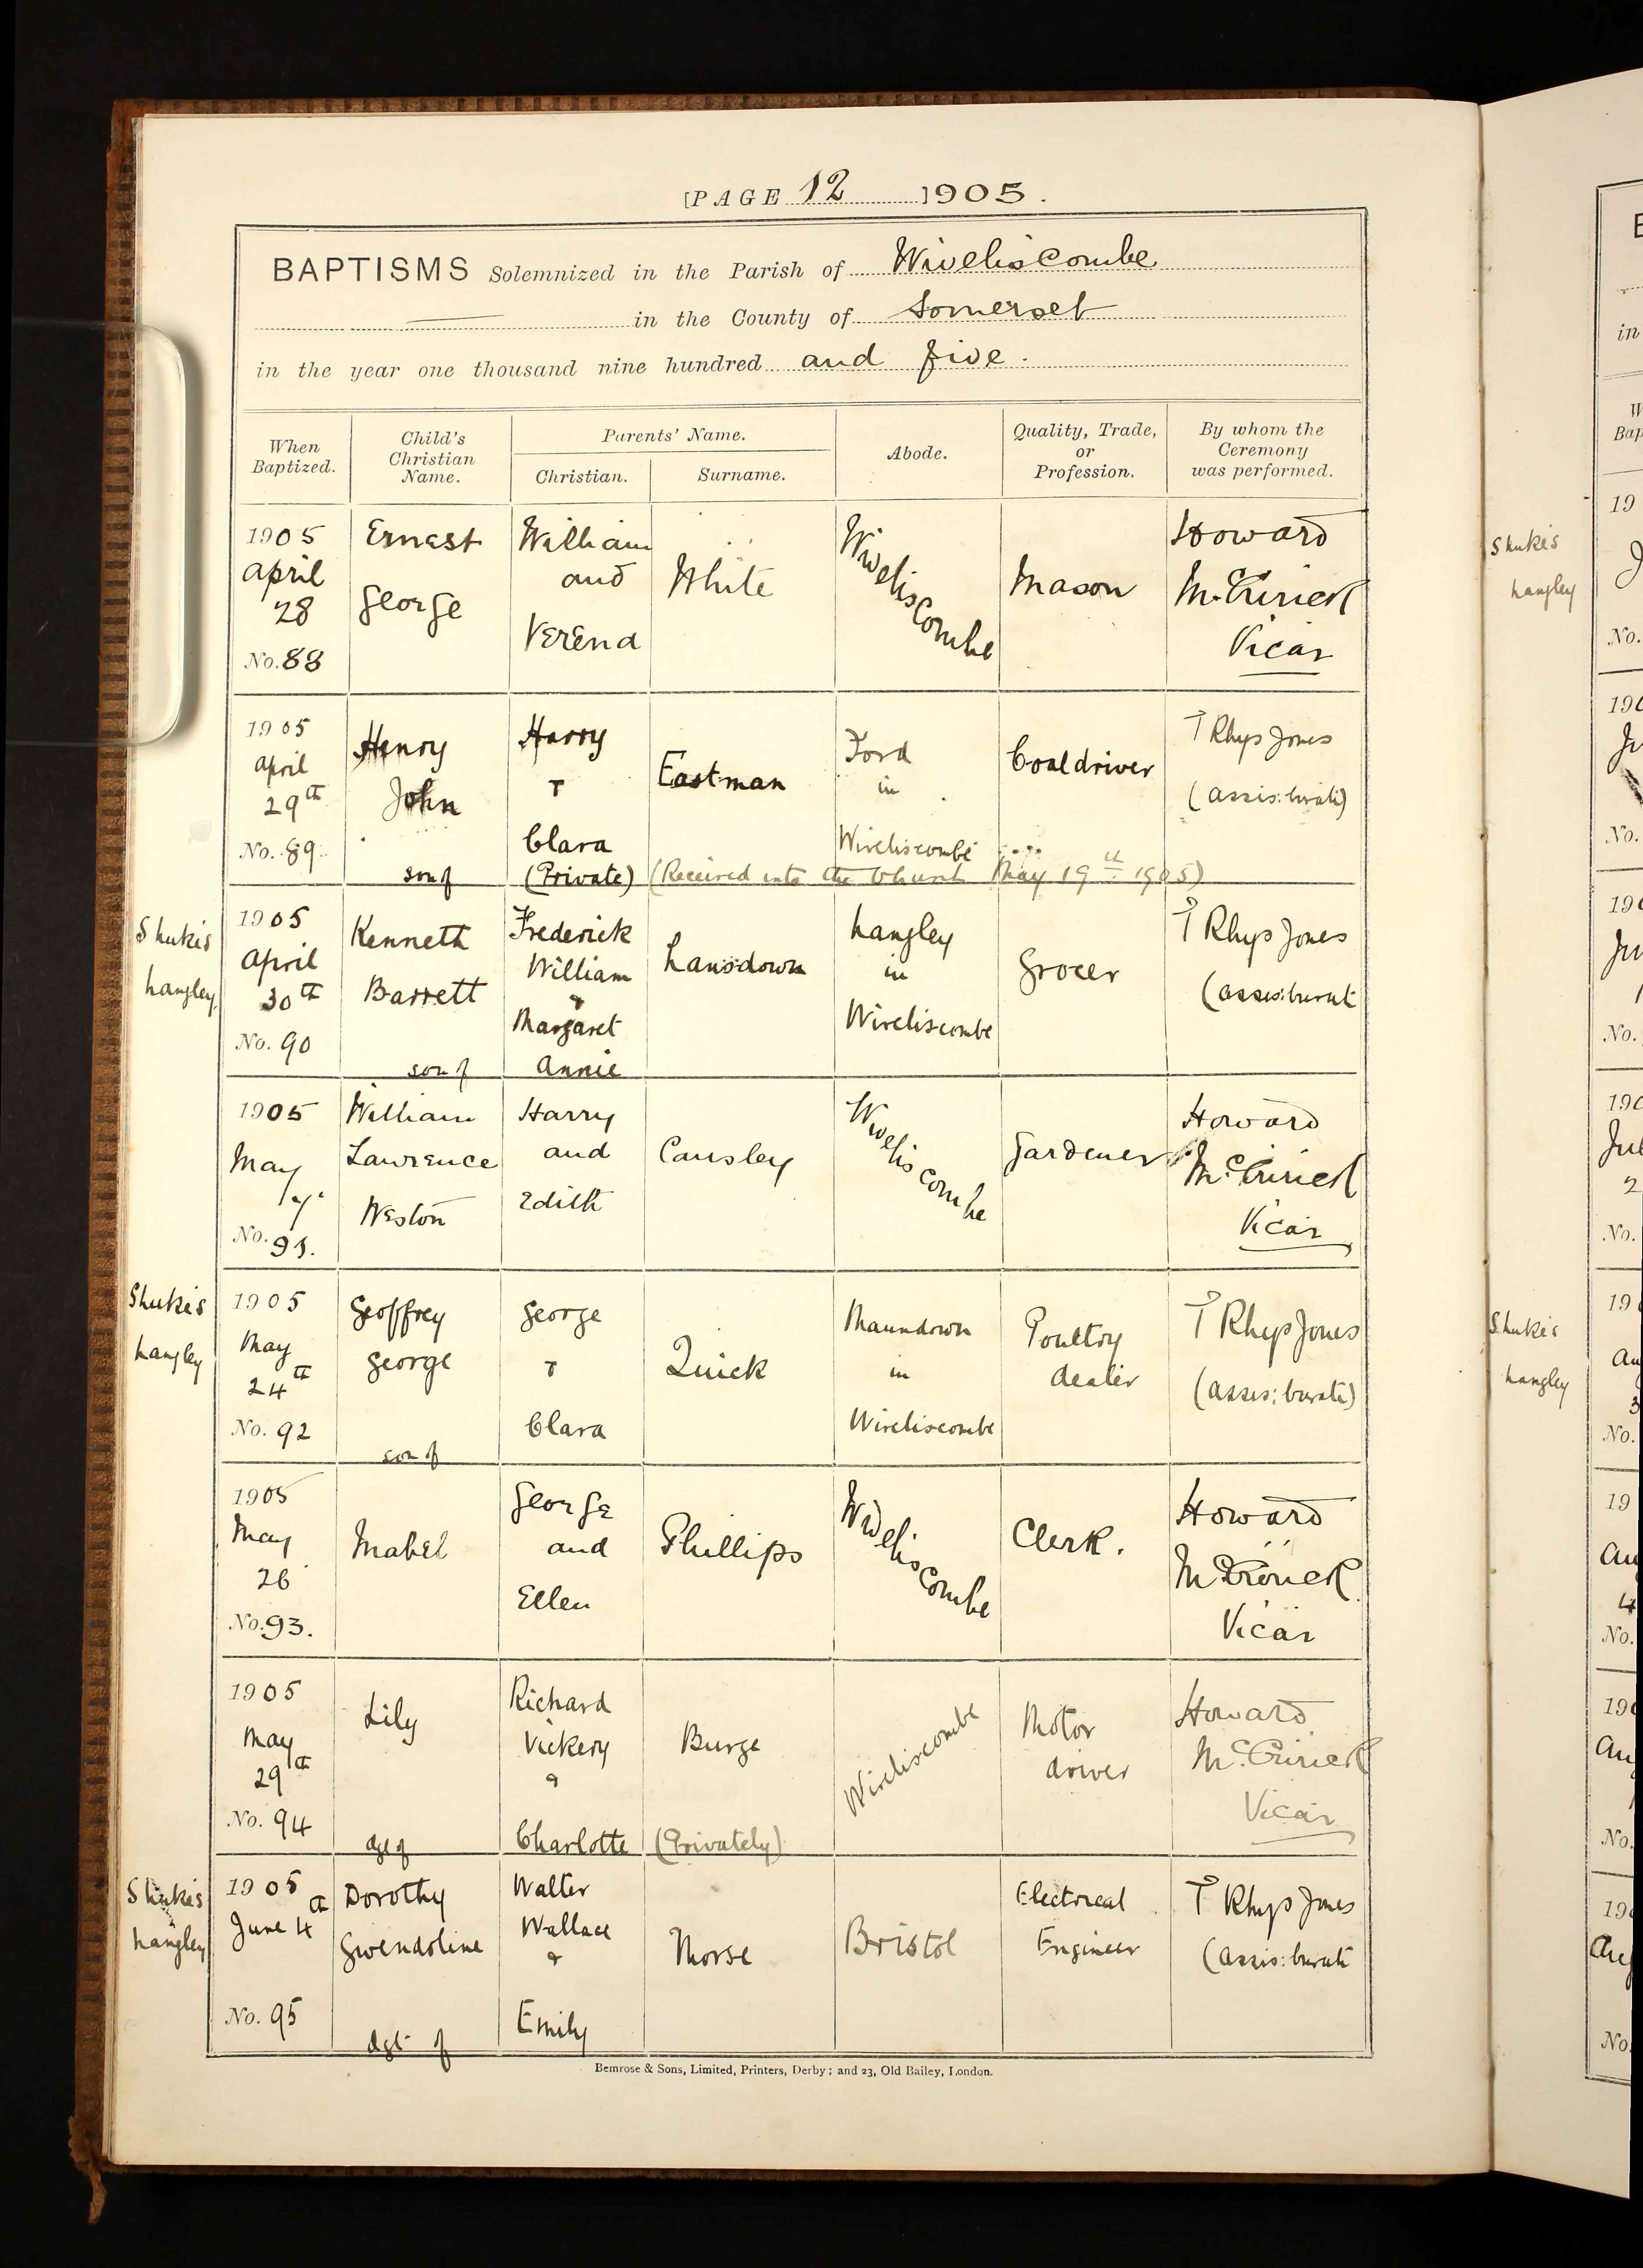 [PAGE 12 ]1905.
BAPTISMS Solemnized in the Parish of Wiveliscombe
in the County of Somerset
in the year one thousand nine hundred and five.
When Baptized.
Child's Christian Name.
Parents' Name.
Christian.
Surname.
Abode.
Quality, Trade, or Profession.
By whom the Ceremony was performed.
1905 April 28 No. 88
Ernest George
William and Verena
White
Wiveliscombe
Mason
Howard Vicar
1905 April 29th No. 89
Henry John son of
Harry + Clara
Eastman
Ford in Wiveliscombe
Coaldriver
T Rhys Jones (assis: curate)
(Private) (Received into the Church May 19th 1905)
Langley
1905 April 30th No. 90
Kenneth Barrett son of
Frederick William & Margaret Annie
Lansdown
Langley in Wiveliscombe
Grocer
T Rhys Jones (assis: curate
1905 May 7 No. 91.
William Lawrence Weston
Harry and Edith
Causley
Wiveliscombe
Gardener
Howard Vicar
Langley
1905 May 24th No. 92
Geoffrey George son of
George + Clara
Quick
Maundown in Wiveliscombe
Poultry dealer
T Rhys Jones (assis: curate)
1905 May 26 No. 93.
Mabel
George and Ellen
Phillips
Wiveliscombe
Clerk.
Howard Vicar
1905 May 29th No. 94
Lily dgt of
Richard Vickery & Charlotte
Burge
(Privately)
Wiveliscombe
Motor driver
Howard Vicar
Langley
1905 June 4th No. 95
Dorothy Gwendoline dgt of
Walter Wallace & Emily
Morse
Bristol
Electrical Engineer
T Rhys Jones (assis: curate
Bemrose & Sons, Limited, Printers, Derby; and 23, Old Bailey, London.
Langley
Langley